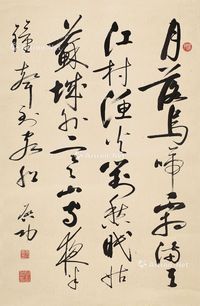 月落烏啼霜滿天
江村漁火對愁眠姑
蘇城外寒山寺夜半
鐘聲到客船 启功